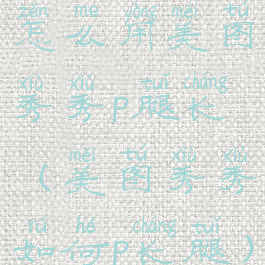 zěn me yòng měi tú
怎么用美图
xiù xiù tuǐ cháng
秀秀p腿长
měi tú xiù xiù
（美图秀秀
rú hé cháng tuǐ
如何p长腿）